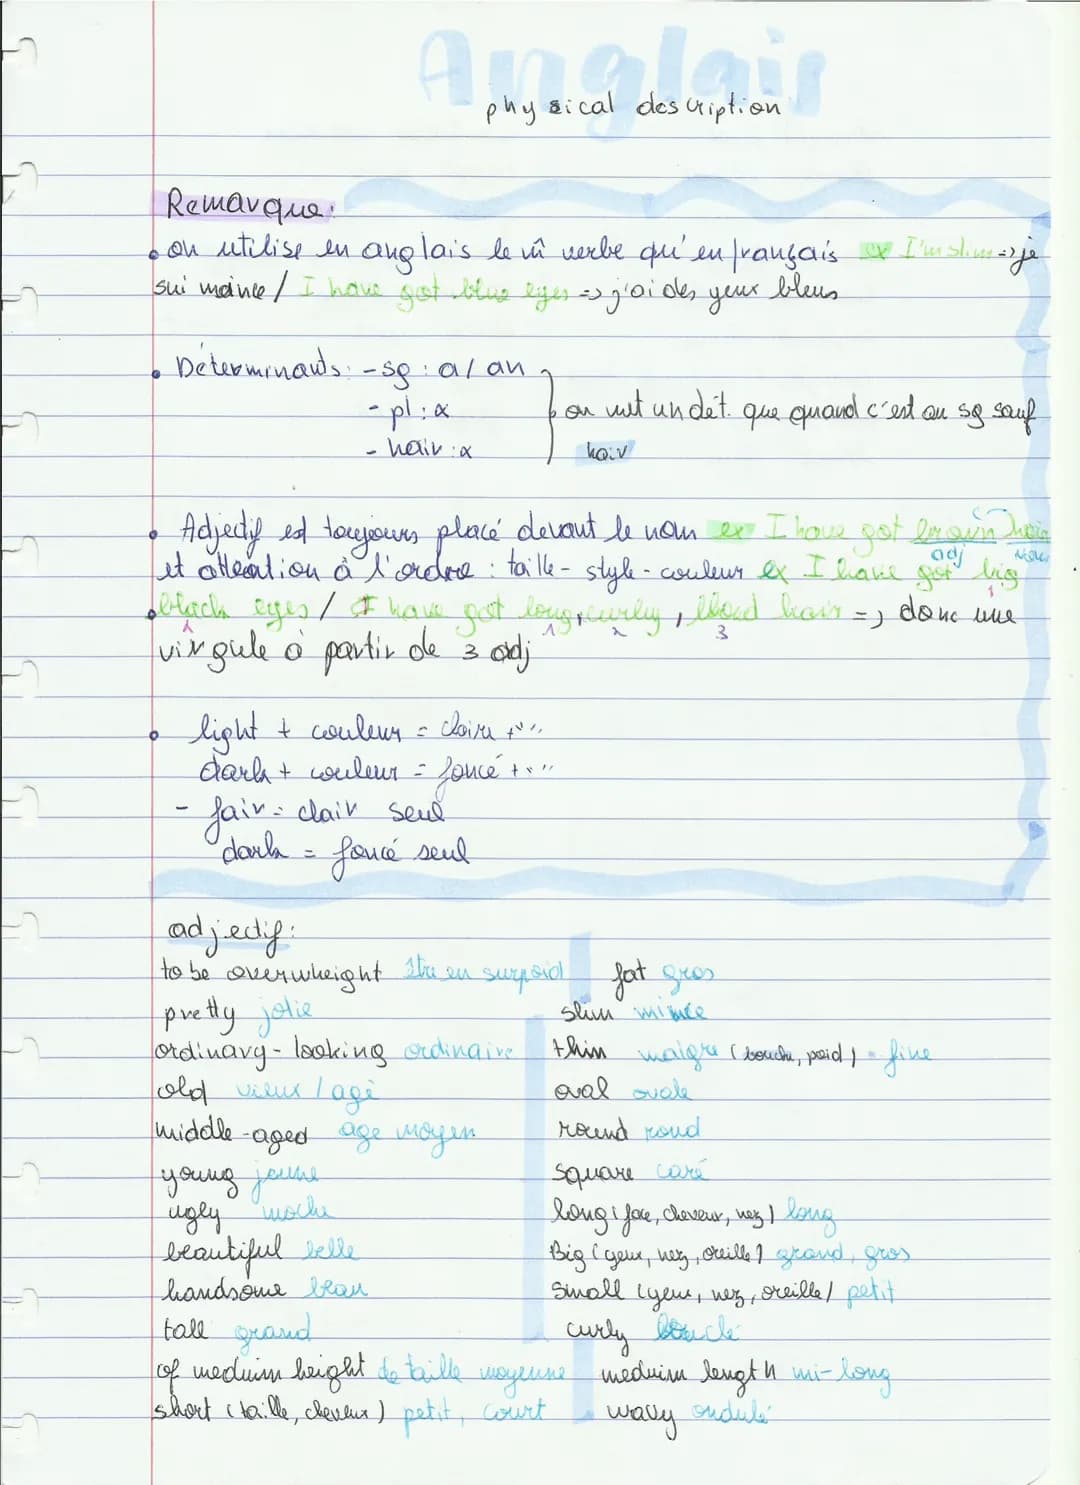 Anglais
physical description
Remarque:
• on utilise en anglais le m̂ verbe qu'en français ex I'm slim => je
sui meince / I have got blue eyes => j'ai des yeux bleus
• Déterminants: - sg : a / an
- pl : x
- hair : x
on met un dét. que quand c'est au sg sauf
hair
• Adjectif est toujours placé devant le nom ex I have got brown hair
adj nom
et attention à l'ordre : taille - style - couleur ex I have got big
1
• black eyes / I have got long, curly, blond hair => donc une
2 1 2 3
virgule à partir de 3 adj
• light + couleur = claire + " "
dark + couleur = foncé + " "
- fair = clair seul
dark = foncé seul
adjectif:
to be overwheight être en surpoid fat gros
pretty jolie slim mince
ordinary-looking ordinaire thin maigre (bouche, poid) = fine
old vieux / agé oval ovale
middle-aged age moyen round rond
young jeune square caré
ugly moche long (face, cheveux, nez) long
beautiful belle Big (yeux, nez, oreille) grand, gros
handsome beau small (yeux, nez, oreille) petit
tall grand curly bouclé
of meduim height de taille moyenne meduim length mi-long
short (taille, cheveux) petit, court wavy ondulé